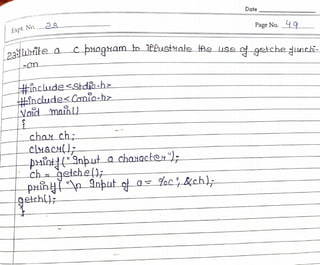 Date
Expt. No. 23
Page No. 49
23) Write a c program to illustrate the use of getche functi-
-on
#include<stdio.h>
#include<conio.h>
void main()
{
char ch;
clrscr();
printf("Input a character");
ch = getche();
printf("\n Input of a = %c", &ch);
getch();
}